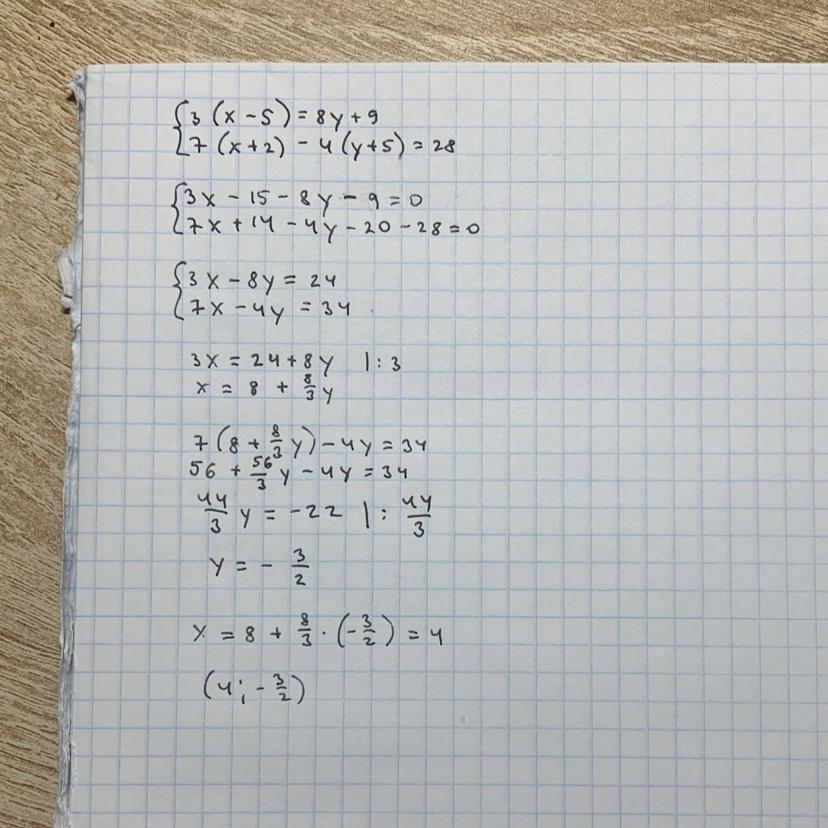 {3(x-5)=8y+9
7(x+2)-4(y+5)=28
{3x-15-8y-9=0
7x+14-4y-20-28=0
{3x-8y=24
7x-4y=34
3x=24+8y |:3
x=8+8/3y
7(8+8/3y)-4y=34
56+56/3y-4y=34
44/3y=-22 |:44/3
y=-3/2
x=8+8/3·(-3/2)=4
(4;-3/2)